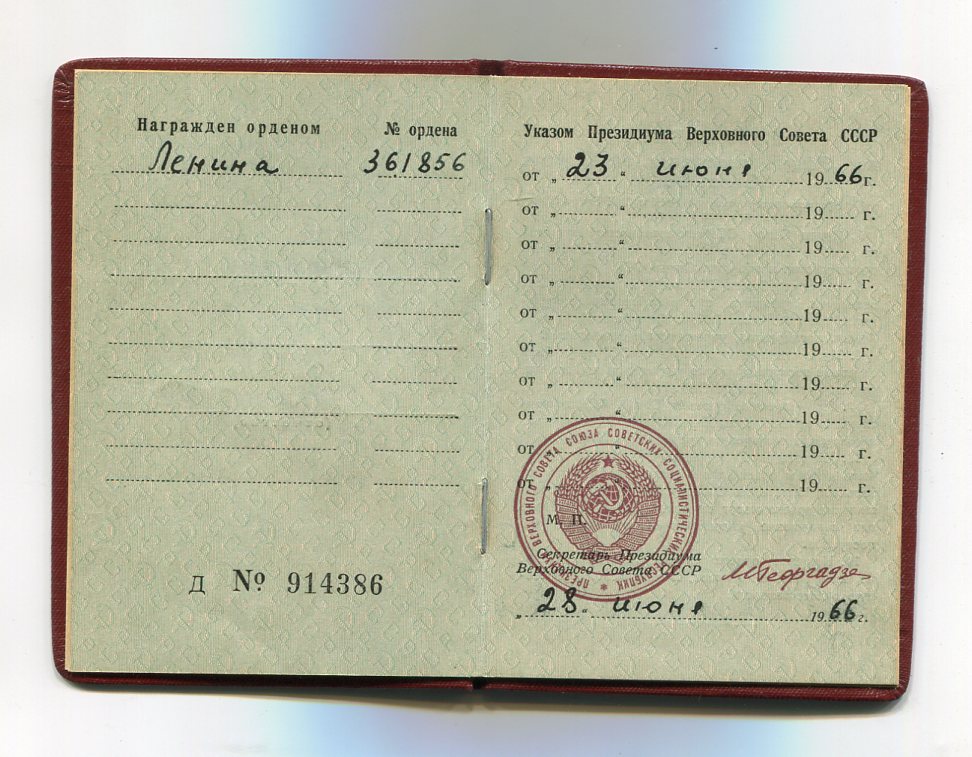 Награжден орденом № ордена
Ленина 361856
Д № 914386
Указом Президиума Верховного Совета СССР
от „ 23 “ июня 19 66 г.
от „ “ 19 г.
от „ “ 19 г.
от „ “ 19 г.
от „ “ 19 г.
от „ “ 19 г.
от „ “ 19 г.
от „ “ 19 г.
от „ “ 19 г.
от „ “ 19 г.
ПРЕЗИДИУМ ВЕРХОВНОГО СОВЕТА СОЮЗА СОВЕТСКИХ СОЦИАЛИСТИЧЕСКИХ РЕСПУБЛИК
М. П.
Секретарь Президиума
Верховного Совета СССР М Георгадзе
„ 28 “ июня 19 66 г.